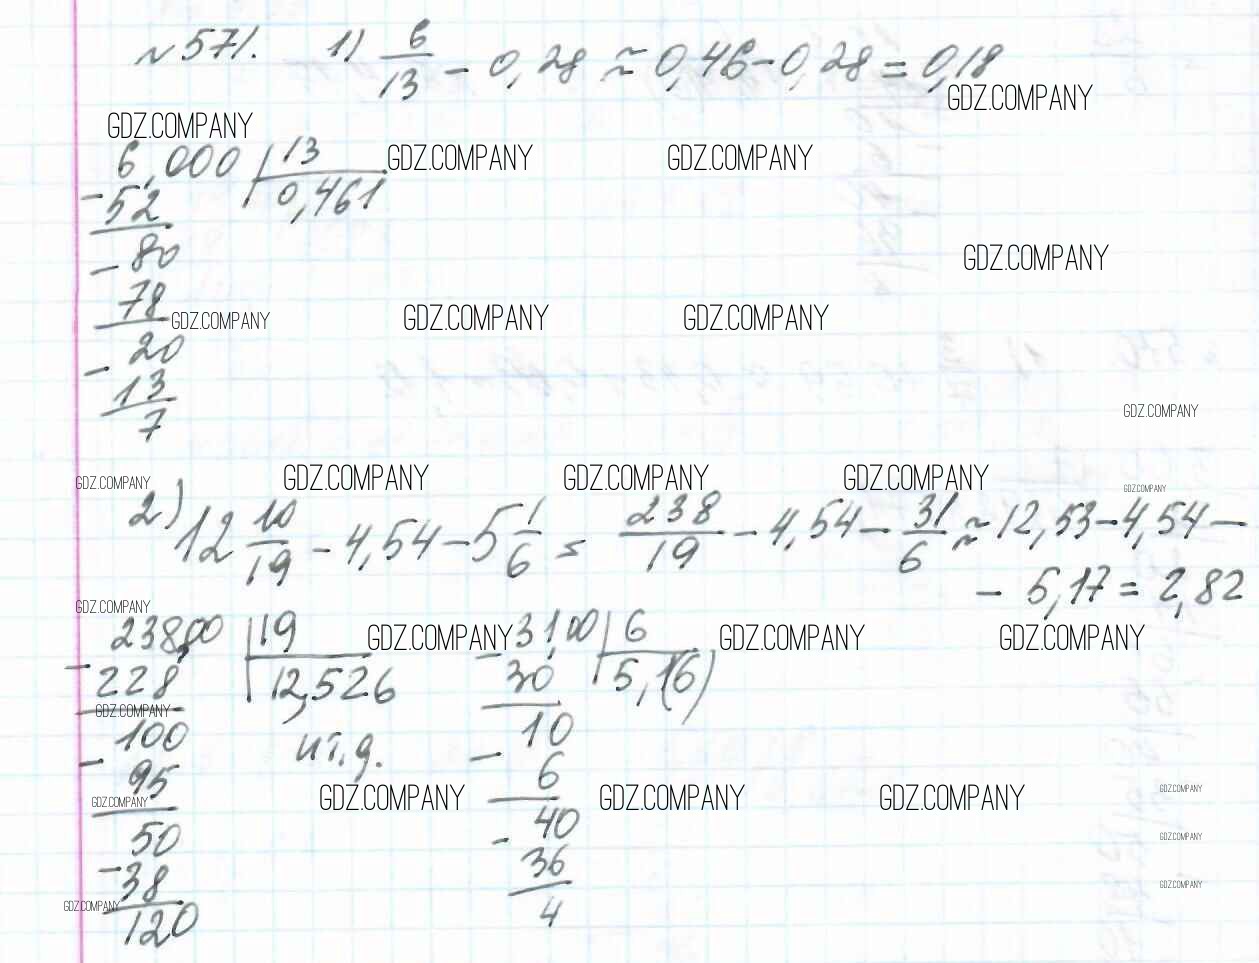 № 571. 1) 6/13 - 0,28 ≈ 0,46 - 0,28 = 0,18
GDZ.COMPANY
GDZ.COMPANY
6,000 | 13 GDZ.COMPANY GDZ.COMPANY
- 52 0,461
- 80 GDZ.COMPANY
78
GDZ.COMPANY GDZ.COMPANY GDZ.COMPANY
- 20
13
7
GDZ.COMPANY
GDZ.COMPANY GDZ.COMPANY GDZ.COMPANY GDZ.COMPANY
GDZ.COMPANY
2) 12 10/19 - 4,54 - 5 1/6 = 238/19 - 4,54 - 31/6 ≈ 12,53 - 4,54 -
- 5,17 = 2,82
GDZ.COMPANY
238,00 | 19 GDZ.COMPANY 31,00 | 6 GDZ.COMPANY GDZ.COMPANY
- 228 12,526 - 30 5,1(6)
GDZ.COMPANY
100 и т.д. 10
- 95 - 6
GDZ.COMPANY GDZ.COMPANY GDZ.COMPANY GDZ.COMPANY GDZ.COMPANY
50 - 40
GDZ.COMPANY
- 38 36
GDZ.COMPANY GDZ.COMPANY
120 4